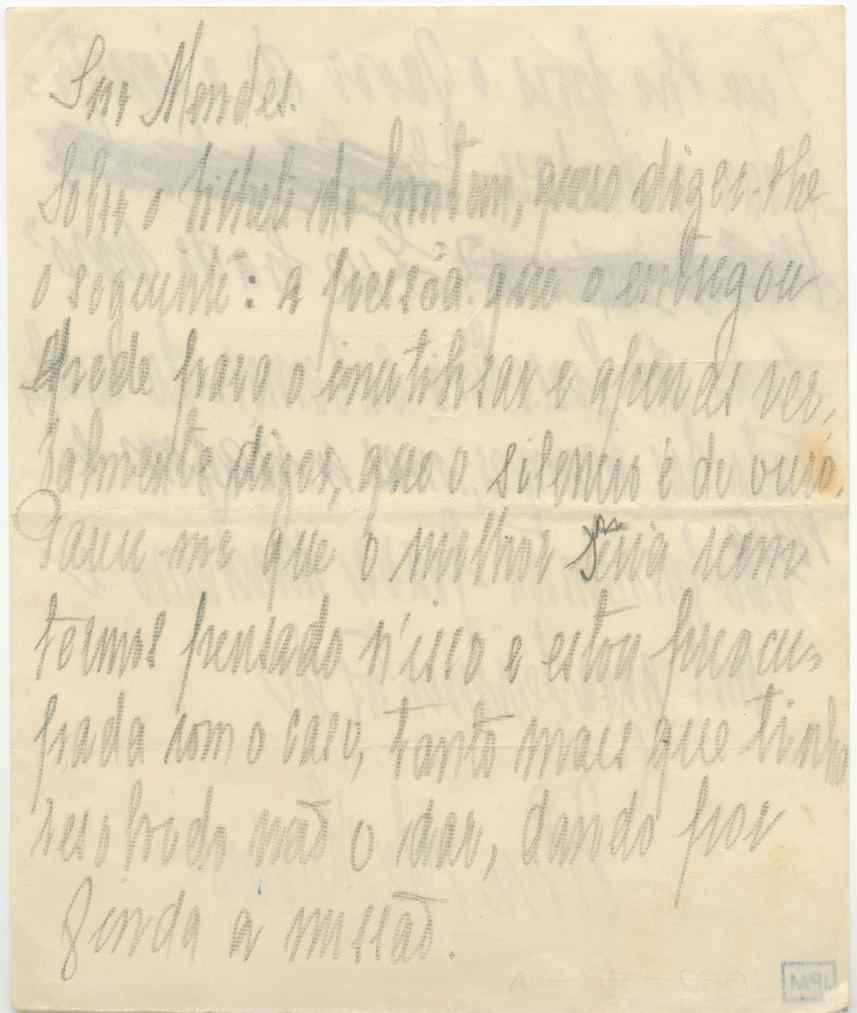 Snr Mendes.
Sobre o bilhete de hontem, quero dizer-lhe
o seguinte: a pessôa que o entregou
pode para o inutilisar e apenas ver,
balmente dizer, que o silencio é de ouro.
Parece-me que o melhor seria nem
termos pensado n'isso e estou preocu,
pada com o caso, tanto mais que tinha
resolvido não o dar, dando por
finda a missão.
JPM